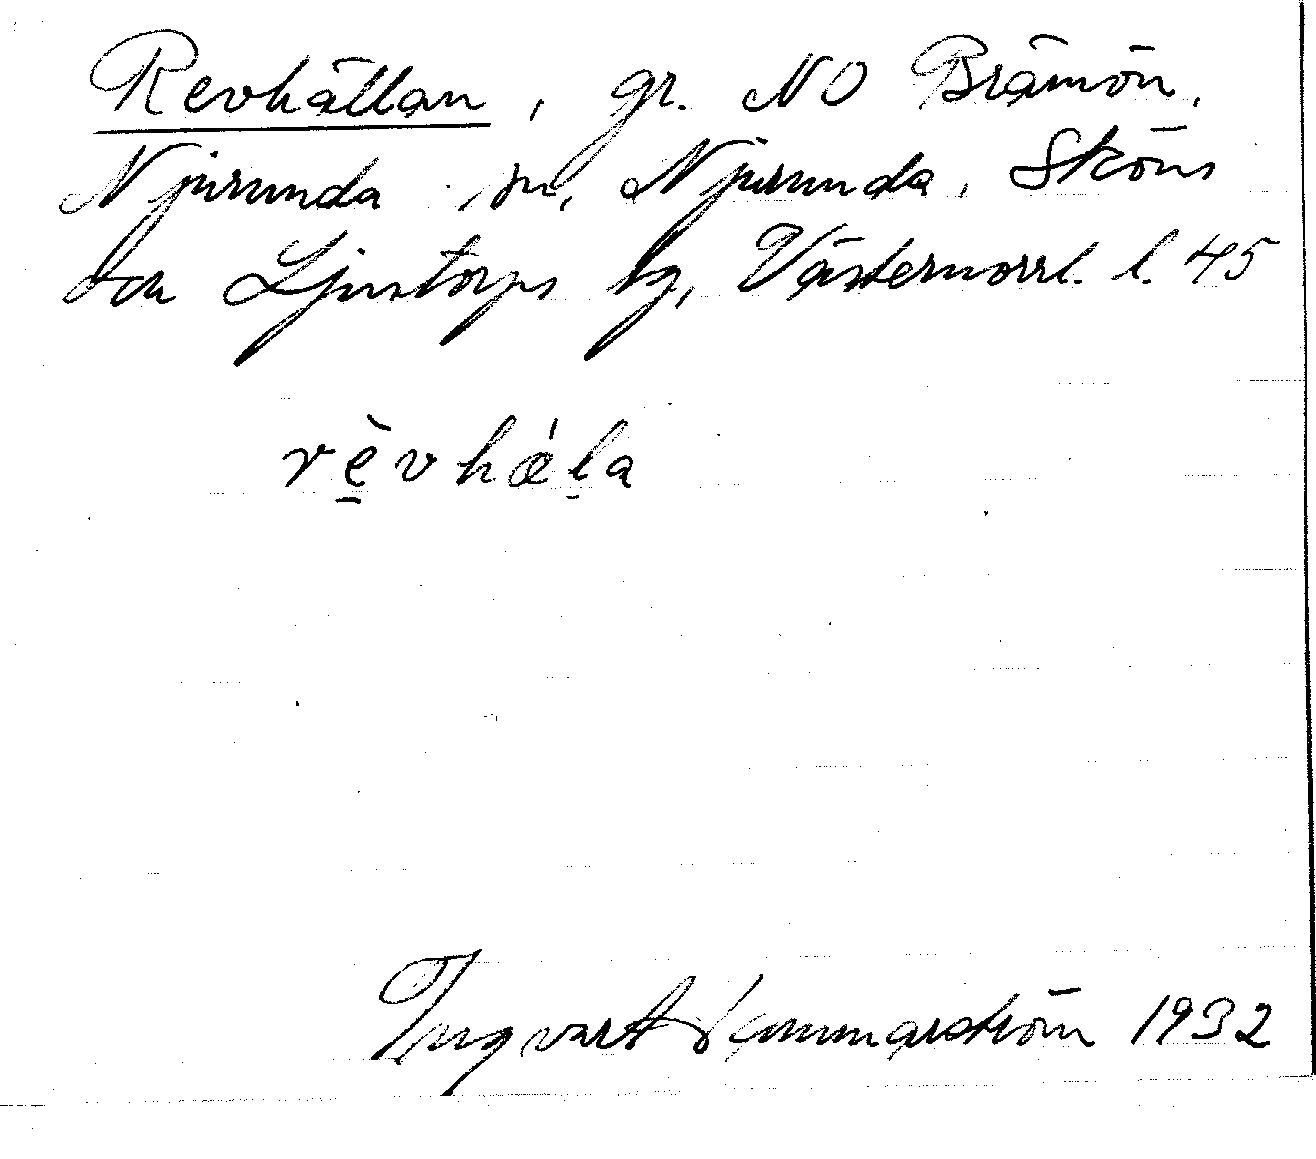 Revhällan, gr. NO Brämön,
Njurunda sn, Njurunda, Sköns
och Ljustorps tg, Västernorrl. l. 45
rè̱vhǽḻa
Ingvart Sommarström 1932